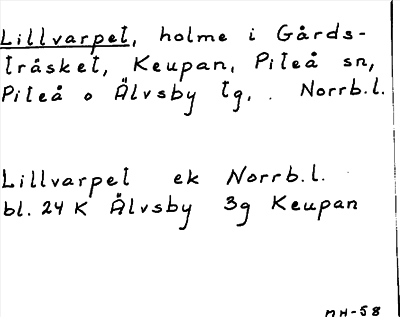 Lillvarpet, holme i Gårds-
tråsket, Keupan, Piteå sn,
Piteå o Älvsby tg, . Norrb.l.
Lillvarpet ek Norrb.l.
bl. 24 K Älvsby 3g Keupan
MH-58